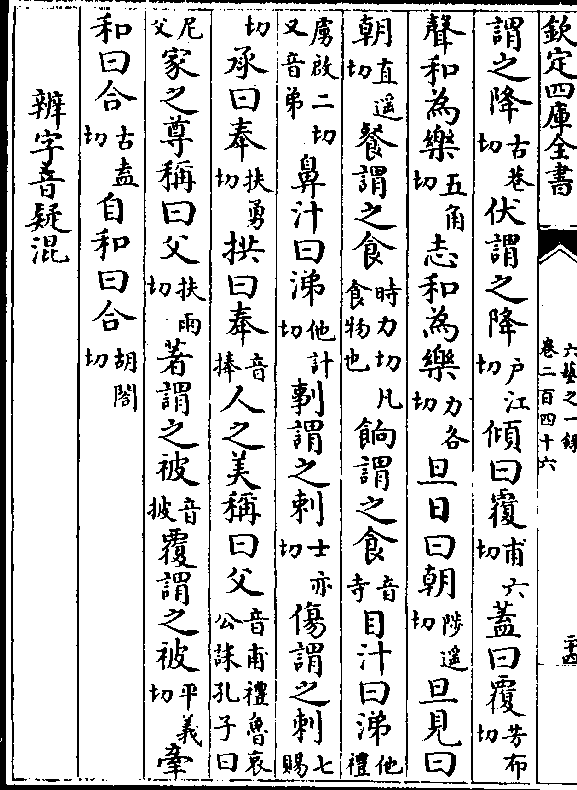 欽定四庫全書
六藝之一録
卷二百四十六
二十四
謂之降古巷切伏謂之降户江切傾曰覆甫六切蓋曰覆芳布切
聲和為樂五角切志和為樂力各切旦日曰朝陟遥切旦見曰
朝直遥切餐謂之食時力切凡食物也餉謂之食音寺目汁曰涕他禮
虜啟二切又音弟鼻汁曰涕他計切剚謂之刺士亦切傷謂之刺七賜
切承曰奉扶勇切拱曰奉音捧人之美稱曰父音甫禮魯哀公誄孔子曰
尼父家之尊稱曰父扶雨切著謂之被音披覆謂之被平義切牽
和曰合古盍切自和曰合胡閤切
辨字音疑混